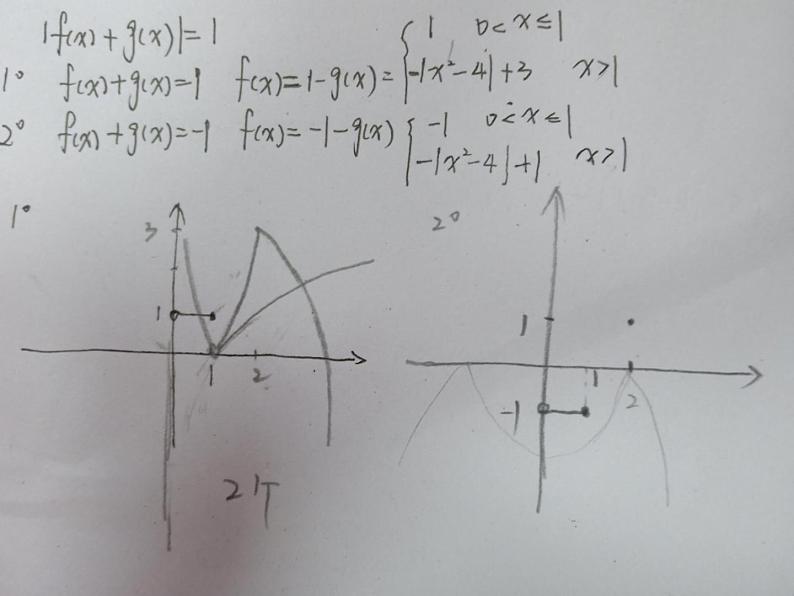 |f(x)+g(x)|=1
1° f(x)+g(x)=1 f(x)=1-g(x)= { 1 0<x≤1
-|x²-4|+3 x>1
2° f(x)+g(x)=-1 f(x)=-1-g(x) { -1 0<x≤1
-|x²-4|+1 x>1
1° 2°
3
1 1
1 2 1 2
-1
2个